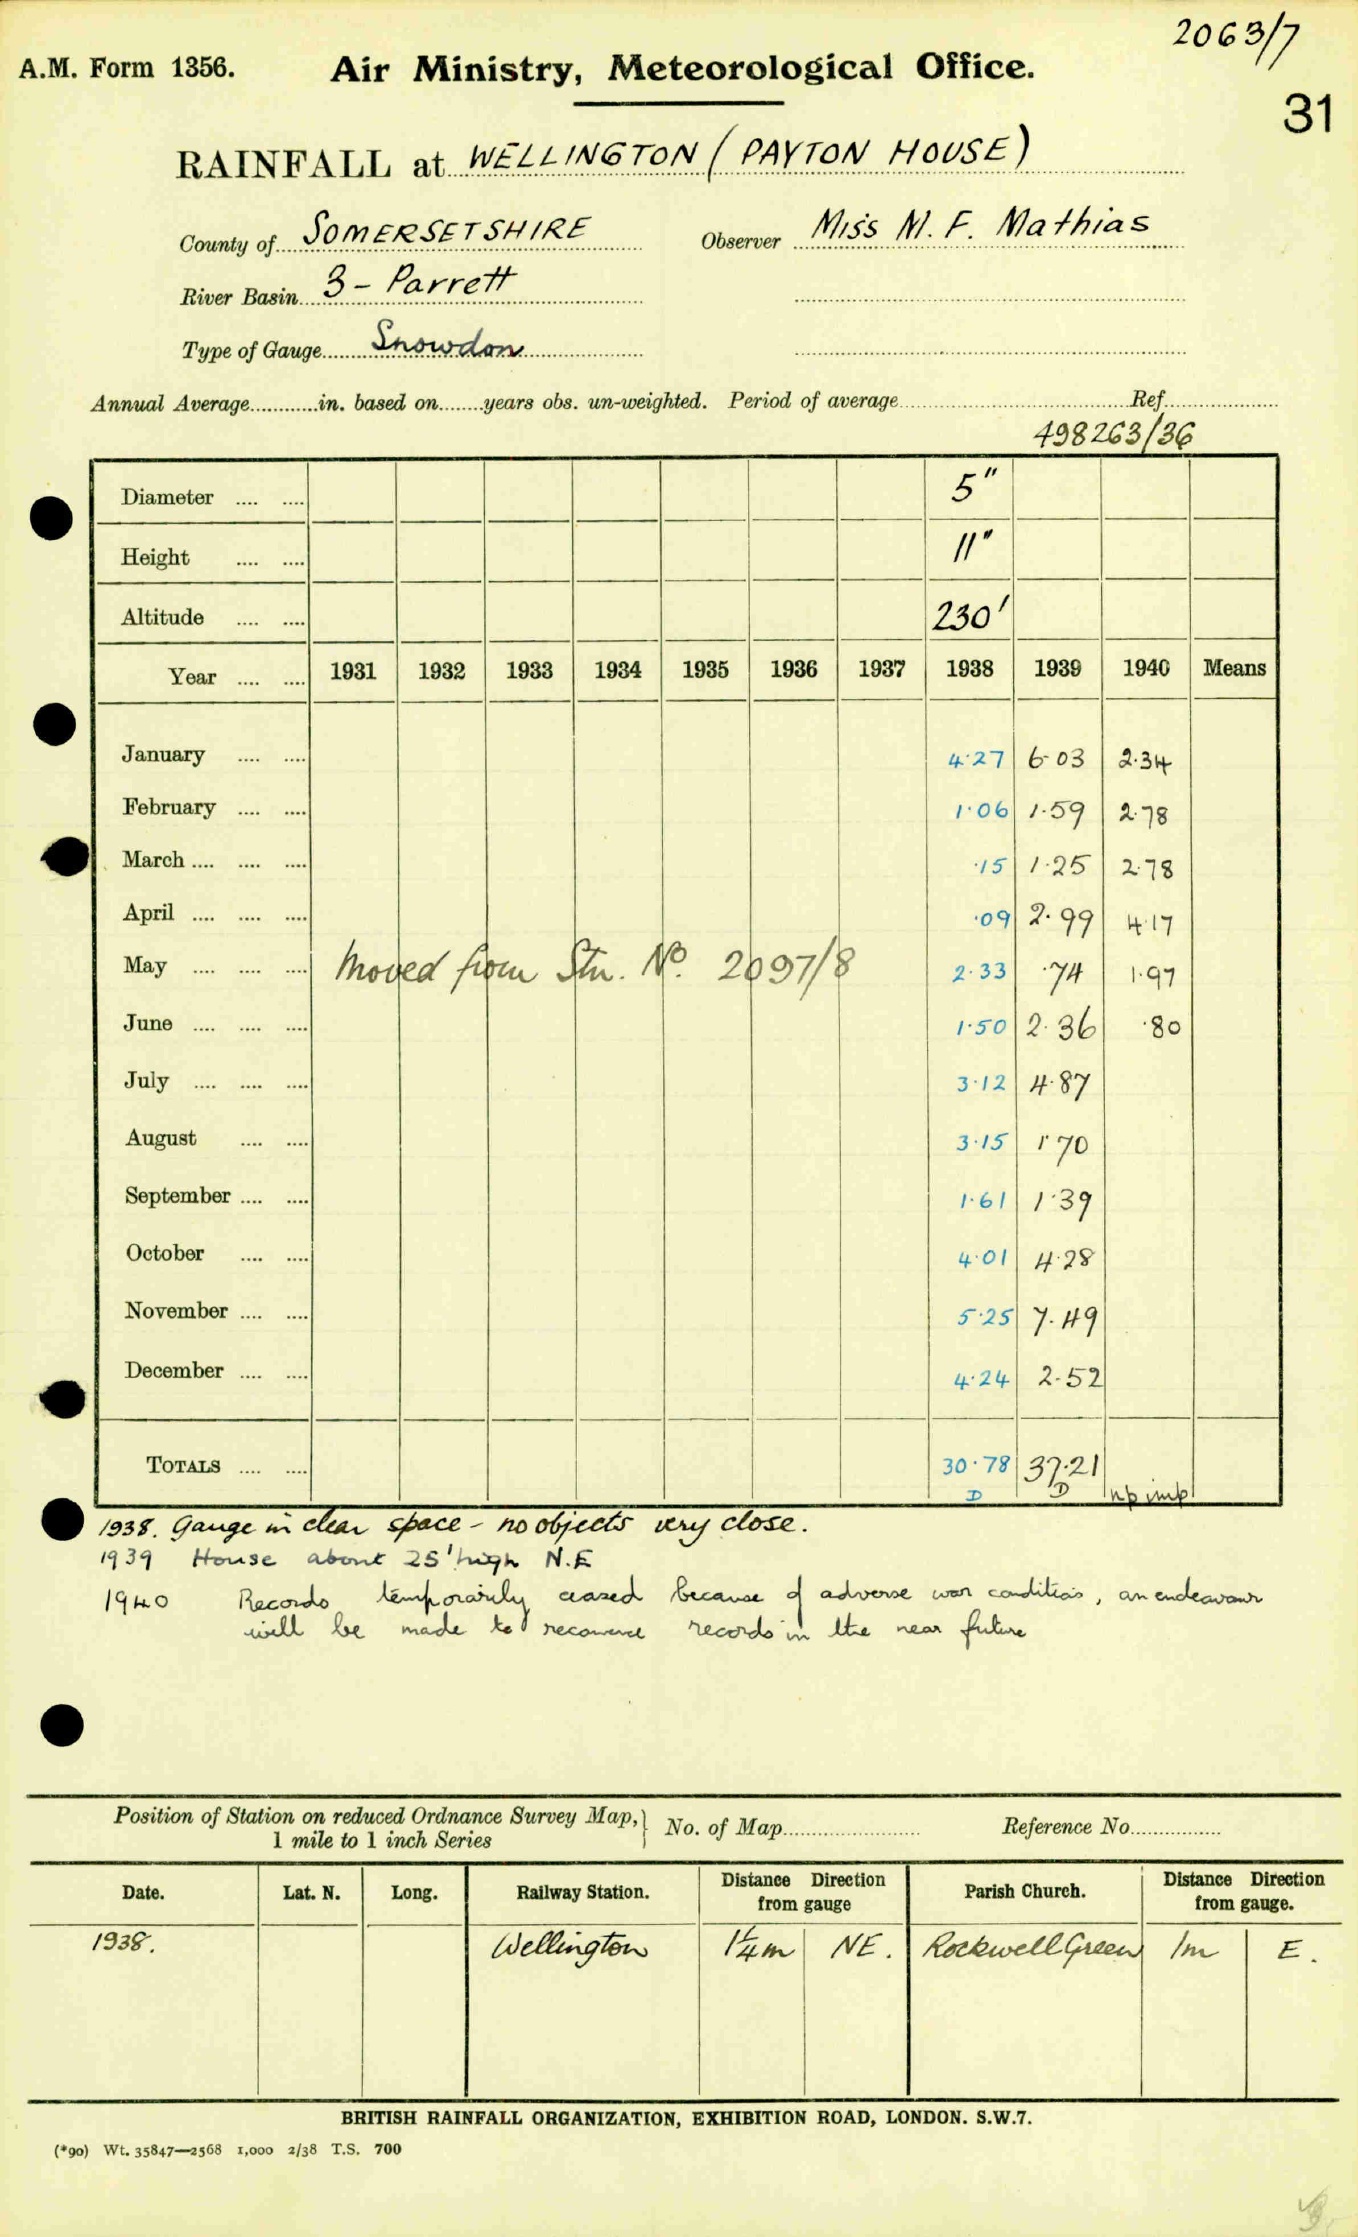 2063/7
A.M. Form 1356. Air Ministry, Meteorological Office.
31
RAINFALL at WELLINGTON (PAYTON HOUSE)
County of SOMERSETSHIRE Observer Miss M. F. Mathias
River Basin 3 - Parrett
Type of Gauge Snowdon
Annual Average............in. based on........years obs. un-weighted. Period of average.............Ref.............
498263/36
Diameter .... .... 5"
Height .... .... 11"
Altitude .... .... 230'
Year .... .... 1931 1932 1933 1934 1935 1936 1937 1938 1939 1940 Means
January .... .... 4·27 6·03 2·34
February .... .... 1·06 1·59 2·78
March .... .... .... ·15 1·25 2·78
April .... .... .... ·09 2·99 4·17
May .... .... .... Moved from Stn. No. 2097/8 2·33 ·74 1·97
June .... .... .... 1·50 2·36 ·80
July .... .... .... 3·12 4·87
August .... .... 3·15 1·70
September .... .... 1·61 1·39
October .... .... 4·01 4·28
November .... .... 5·25 7·49
December .... .... 4·24 2·52
TOTALS .... .... 30·78 37·21
D D np imp
1938. Gauge in clear space - no objects very close.
1939 House about 25' high N.E
1940 Records temporarily ceased because of adverse war conditions, an endeavour
will be made to recomence records in the near future
Position of Station on reduced Ordnance Survey Map, } No. of Map............ Reference No............
1 mile to 1 inch Series
Date. Lat. N. Long. Railway Station. Distance Direction from gauge Parish Church. Distance Direction from gauge.
1938. Wellington 1¼m NE. Rockwell Green 1m E.
BRITISH RAINFALL ORGANIZATION, EXHIBITION ROAD, LONDON. S.W.7.
(*90) Wt. 35847—2568 1,000 2/38 T.S. 700